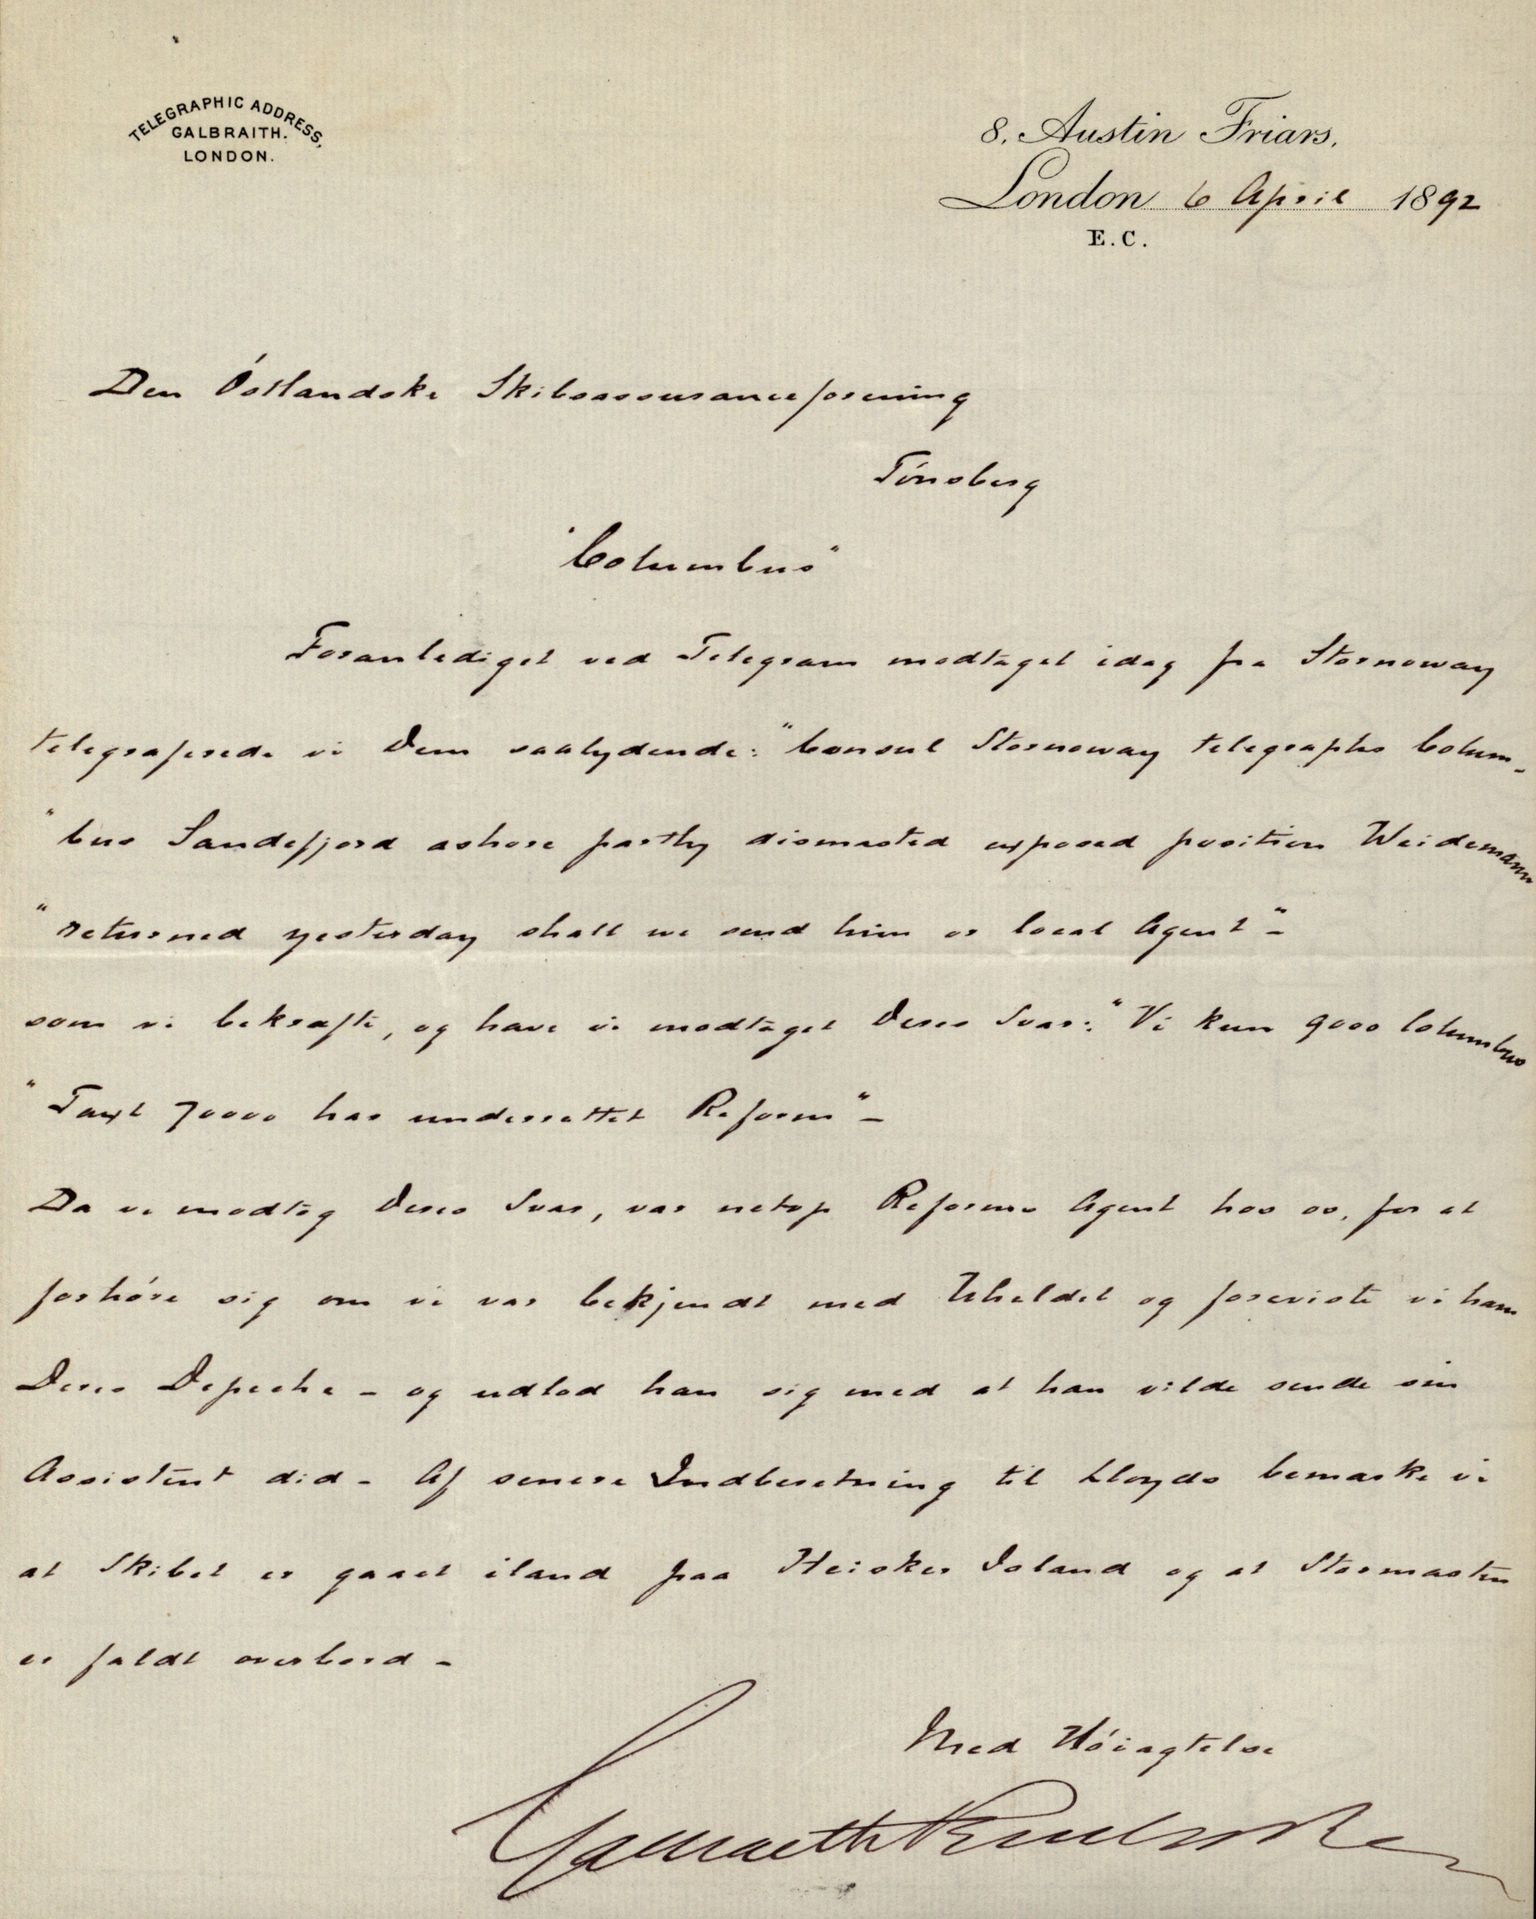 TELEGRAPHIC ADDRESS,
GALBRAITH.
LONDON.
8, Austin Friars,
London 6 April 1892
E.C.
Den Óstlandske Skibsassuranceforening
Tónsberg
"Columbus"
Foranlediget ved Telegram modtaget idag fra Stornoway
telegraferede vi Dem saalydende: "Consul Stornoway telegraphs Colum-
"bus Sandefjord ashore partly dismasted exposed position Weidemann
"returned yesterday shall we send him or local Agent" -
som vi bekræfte, og have vi modtaget Deres Svar: "Vi kun 9000 Columbus
"Taxt 70000 har underrettet Reform" -
Da vi modtog Deres Svar, var netop Reforms Agent hos os, for at
forhóre sig om vi var bekjendt med Uheldet og foreviste vi ham
Deres Depeche - og udlod han sig med at han vilde sende sin
Assistent did - Af senere Indberetning til Lloyds bemærke vi
at Skibet er gaaet iland paa Heisker Island og at Stormasten
er faldt overbord -
Med Hóiagtelse